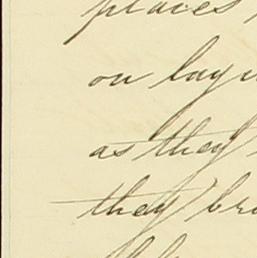 places
on lay
as they
they br